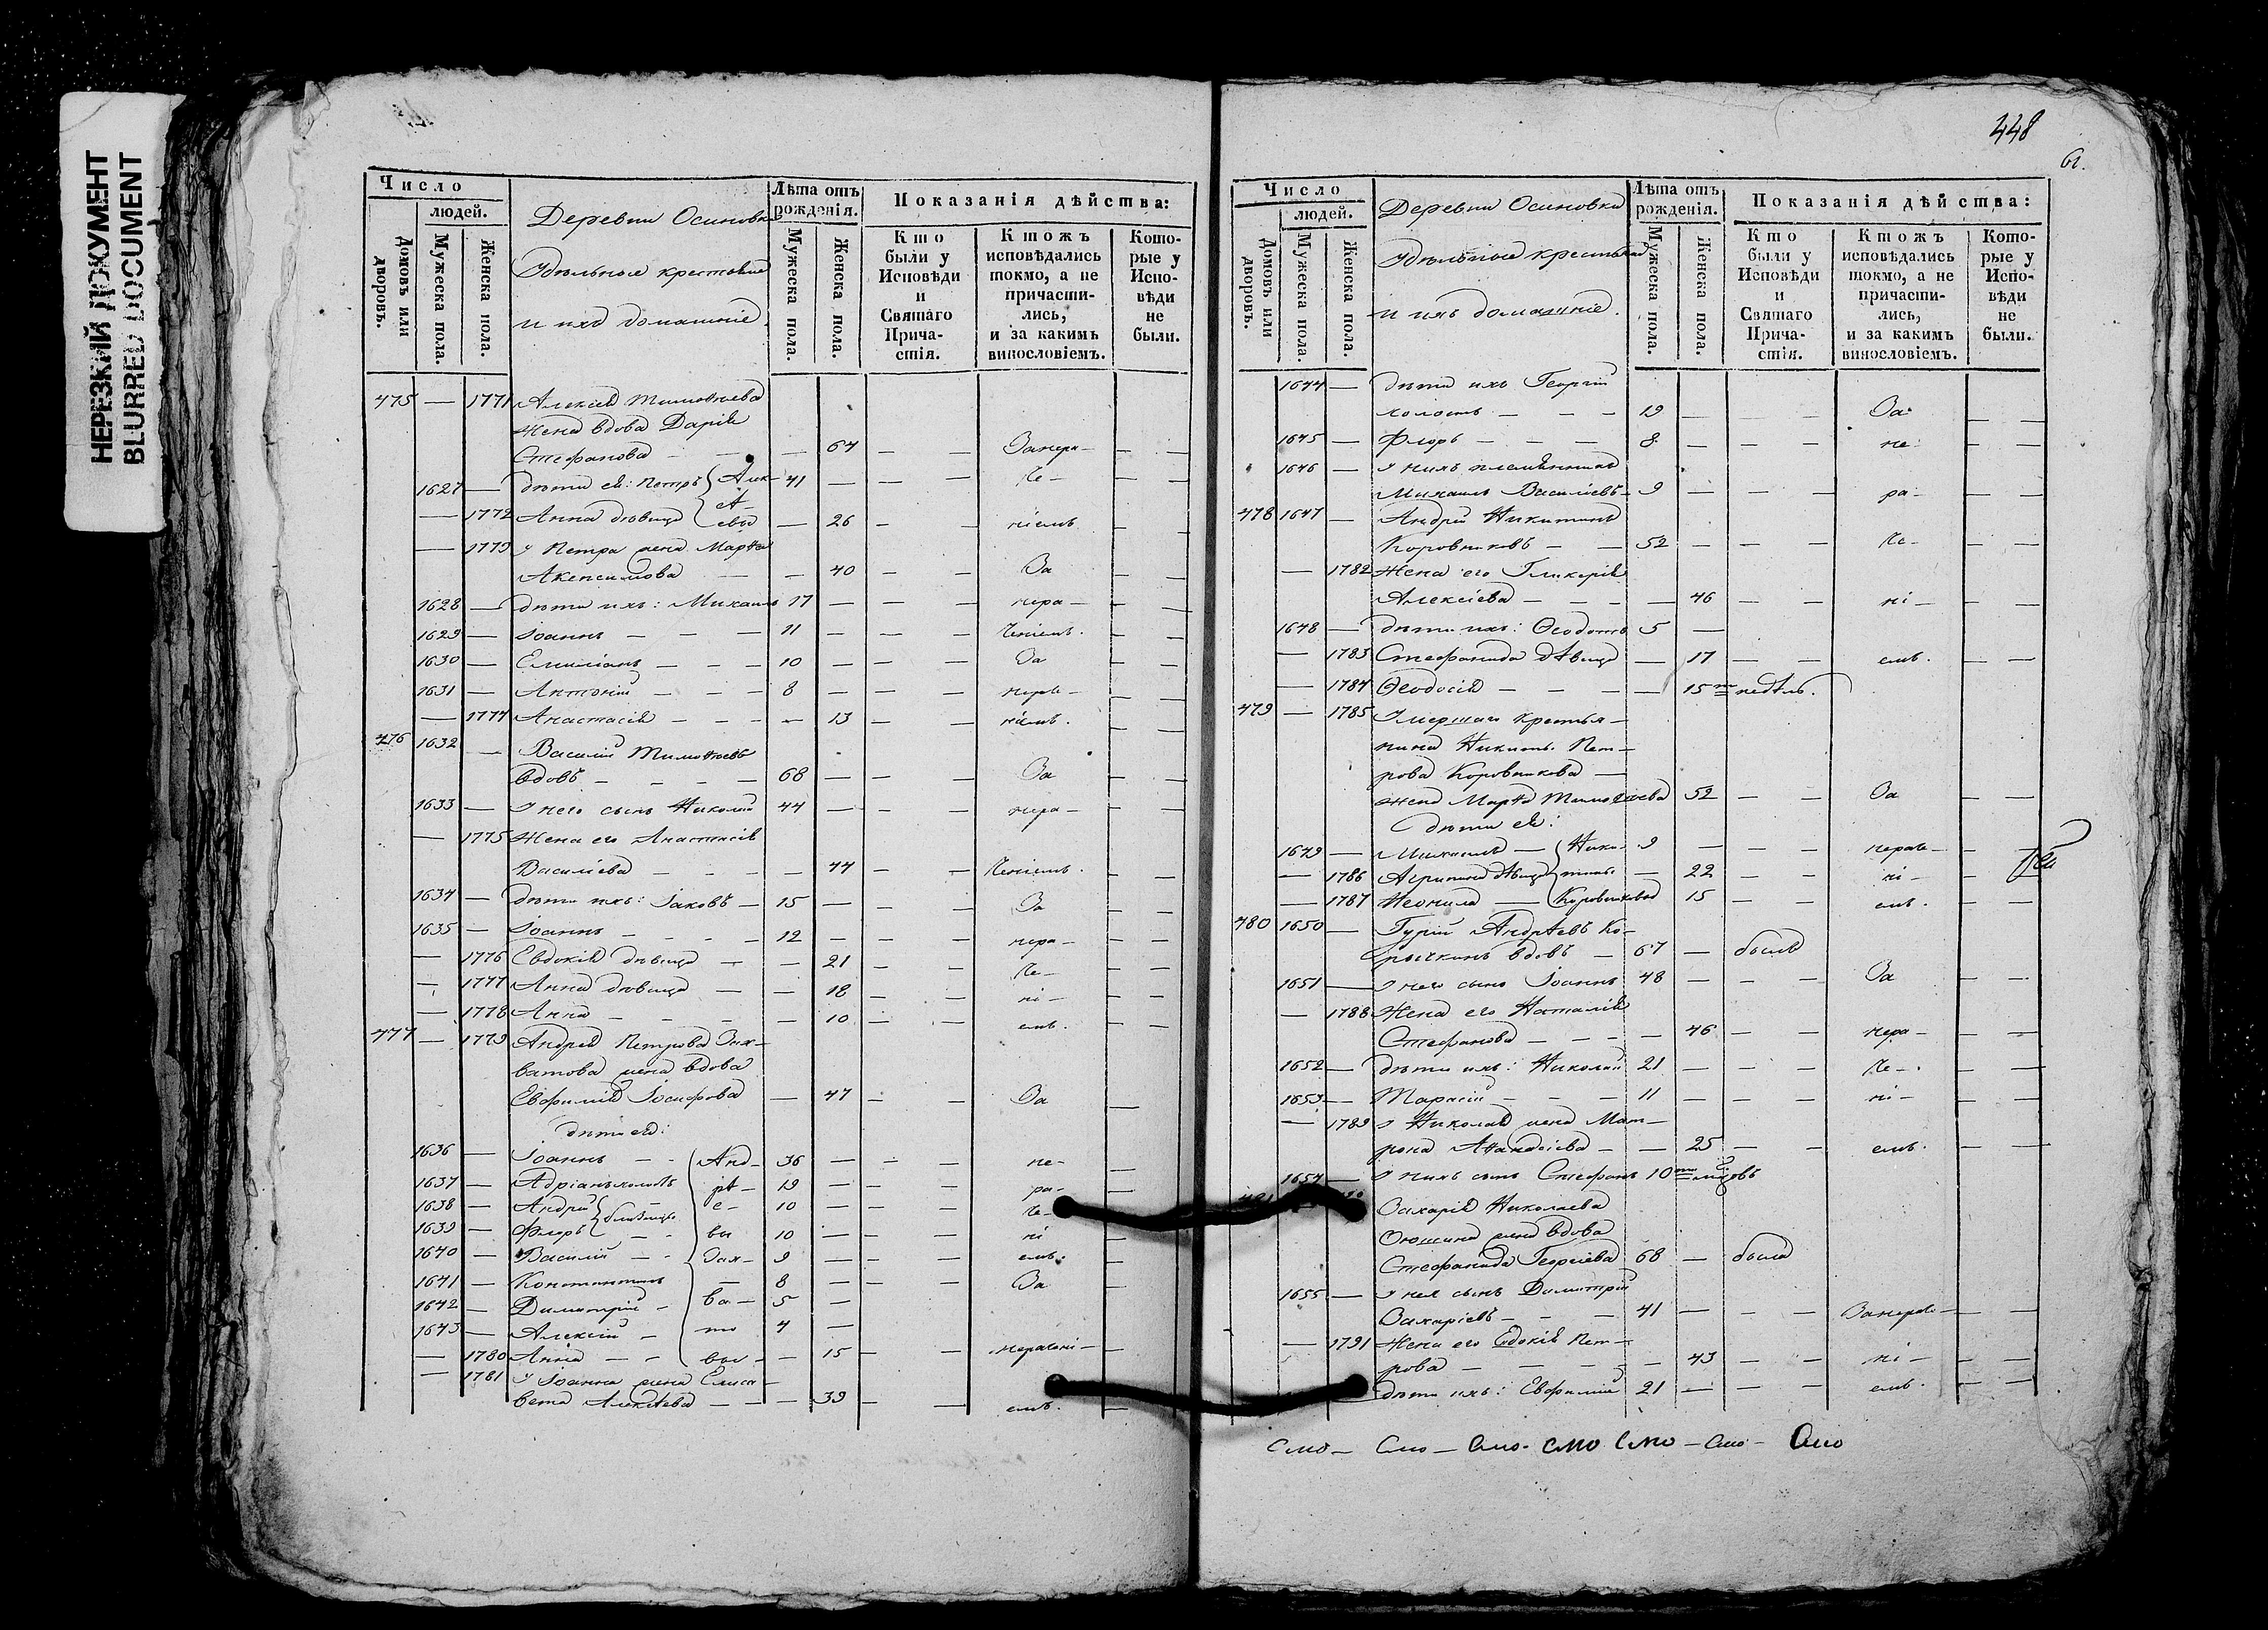 НЕРЕЗКИЙ ДОКУМЕНТ
BLURRED DOCUMENT
Число
людей.
Домовъ или дворовъ.
Мужеска пола.
Женска пола.
Деревни Осиновки
Удѣльные крестьяне
и ихъ домашніе.
Лѣта отъ рожденія.
Мужеска пола.
Женска пола.
Показанія дѣйства:
Кто были у Исповѣди и Святаго Причастія.
Ктожъ исповѣдались токмо, а не причастились, и за какимъ винословіемъ.
Которые у Исповѣди не были.
475 — 1771 Алексѣя Тимоѳеева
жена вдова Дарія
Стефанова — — 64 — — Занера— — —
1627 — дѣти ея: Петръ Алек- 41 — — — че— — —
— 1772 Анна дѣвица сѣ- евы — 26 — — ніемъ — —
— 1773 у Петра жена Марѳа
Акепсимова — — 40 — — За — —
1628 — дѣти ихъ: Михаилъ 17 — — — нера— — —
1629 — Іоаннъ — — — 11 — — — ченіемъ. — —
1630 — Емиліанъ — — — 10 — — — За — —
1631 — Антоній — — — 8 — — — нераче— — —
— 1774 Анастасія — — — — 13 — — ніемъ. — —
476 1632 — Василій Тимоѳеевъ
вдовъ — — — — 68 — — — За — —
1633 — у него сынъ Николай 44 — — — нера— — —
— 1775 Жена его Анастасія
Василіева — — — — 44 — — ченіемъ. — —
1634 — дѣти ихъ: Іаковъ — 15 — — — За — —
1635 — Іоаннъ — — — — 12 — — — нера— — —
— 1776 Евдокія дѣвица — — 21 — — че— — —
— 1777 Анна дѣвица — — 18 — — ні— — —
— 1778 Анна — — — — — 10 — — емъ. — —
477 — 1779 Андрея Петрова Зах-
ватова жена вдова
Евфимія Іосифова — 47 — — За —
дѣти ея:
1636 — Іоаннъ — — Анд- 36 — — — не— —
1637 — Адріанъ холостъ рѣ— 19 — — — ра— —
1638 — Андрей близнецы е— 10 — — — че—
1639 — Флоръ — — вы 10 — — — ні —
1640 — Василій — — Зах- 9 — — — емъ. —
1641 — Константинъ — 8 — — — За —
1642 — Димитрій — ва— 5 —
1643 — Алексій — то 4 —
— 1780 Анна — — вы — — 15 — — нерачені— —
— 1781 у Іоанна жена Елиса-
вета Алексѣева — — — 39 — — емъ. —
448
61.
Число
людей.
Домовъ или дворовъ.
Мужеска пола.
Женска пола.
Деревни Осиновки
Удѣльные крестьяне
и ихъ домашніе.
Лѣта отъ рожденія.
Мужеска пола.
Женска пола.
Показанія дѣйства:
Кто были у Исповѣди и Святаго Причастія.
Ктожъ исповѣдались токмо, а не причастились, и за какимъ винословіемъ.
Которые у Исповѣди не были.
1644 — дѣти ихъ Георгій
холостъ — — — 19 — — — За — —
1645 — Флоръ — — — 8 — — — не — —
1646 — у нихъ племянникъ
Михаилъ Василіевъ — 9 — — — ра— — —
478 1647 — Андрей Никитинъ
Коровниковъ — — 52 — — — че— — —
— 1782 Жена его Гликерія
Алексіева — — — — 46 — — ні— — —
1648 — дѣти ихъ: Ѳеодотъ 5 —
— 1783 Стефанида дѣвица — 17 — — емъ. — —
— 1784 Ѳеодосія — — — — 15ти недѣль.
479 — 1785 Умершаго крестья-
нина Никиты Пет-
рова Коровникова —
жена Марѳа Тимоѳеева 52 — — За — —
дѣти ея:
1649 — Михаилъ — Ники- 9 — — — нераче— — —
— 1786 Агрипина дѣвица тины — 22 — — ні— —
— 1787 Неонила — Коровниковы 15 — — емъ. — —
480 1650 — Гурій Андрѣевъ Ко-
рычкинъ вдовъ — 67 — былъ
1651 — у него сынъ Іоаннъ 48 — — — За — —
— 1788 Жена его Наталія
Стефанова — — — — 46 — — нера— — —
1652 — дѣти ихъ: Николай 21 — — — че— — —
1653 — Тарасій — — — 11 — — — ні— — —
— 1789 у Николая жена Мат-
рона Аѳанасіева — — 25 — — емъ. — —
1654 — у нихъ сынъ Стефанъ 10ти мѣсяцовъ
Захарія Николаева
жена вдова
Стефанида Георгіева 68 — была
1655 — у нея сынъ Димитрій
Захаріевъ — — — 41 — — — Занераче— — —
— 1791 Жена его Евдокія Пет-
рова — — — — — 43 — — ні— — —
дѣти ихъ: Евфимій 21 — — — емъ. — —
сто— Сто— Сто— сто Сто— Сто— Сто